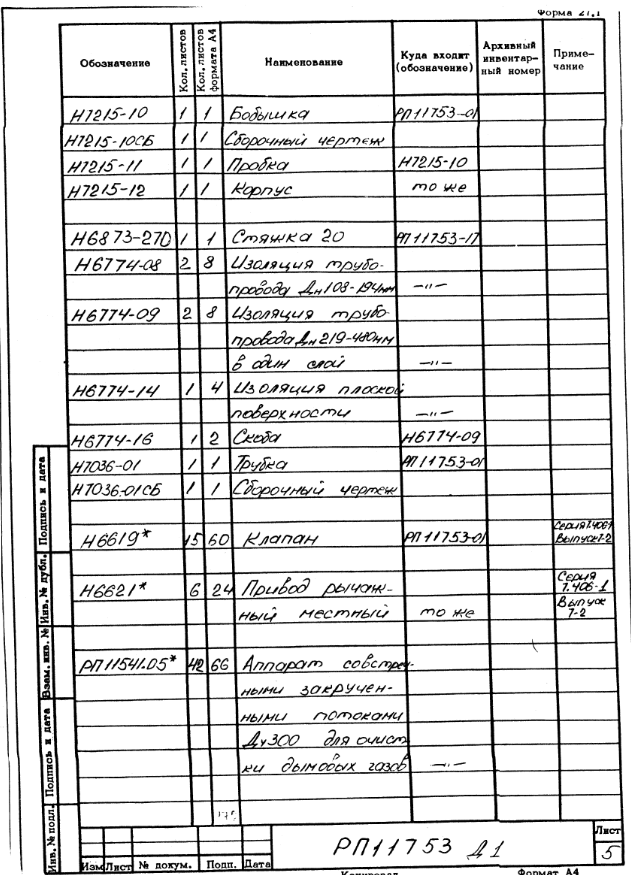 Форма 21,1
Обозначение Кол. листов Кол. листов формата А4 Наименование Куда входит (обозначение) Архивный инвентарный номер Примечание
Н7215-10 1 1 Бобышка РП11753-01
Н7215-10СБ 1 1 Сборочный чертеж
Н7215-11 1 1 Пробка Н7215-10
Н7215-12 1 1 Корпус то же
Н6873-270 1 1 Стяжка 20 РП11753-17
Н6774-08 2 8 Изоляция трубо-
провода Дн108-194мм —"—
Н6774-09 2 8 Изоляция трубо-
провода Дн219-480мм
в один слой —"—
Н6774-14 1 4 Изоляция плоской
поверхности —"—
Н6774-16 1 2 Скоба Н6774-09
Н7036-01 1 1 Трубка РП11753-01
Н7036-01СБ 1 1 Сборочный чертеж
Н6619* 15 60 Клапан РП11753-01 Серия 7.406-1 Выпуск 7-2
Н6621* 6 24 Привод рычаж- Серия 7.406-1
ный местный то же Выпуск 7-2
РП11541.05* 42 66 Аппарат совстреч-
ными закручен-
ными потоками
Ду300 для очист
ки дымовых газов —"—
Подпись и дата
Инв. № дубл.
Взам. инв. №
Подпись и дата
Инв. № подл.
РП11753 Д1
Лист
5
Изм Лист № докум. Подп. Дата
Копировал Формат А4